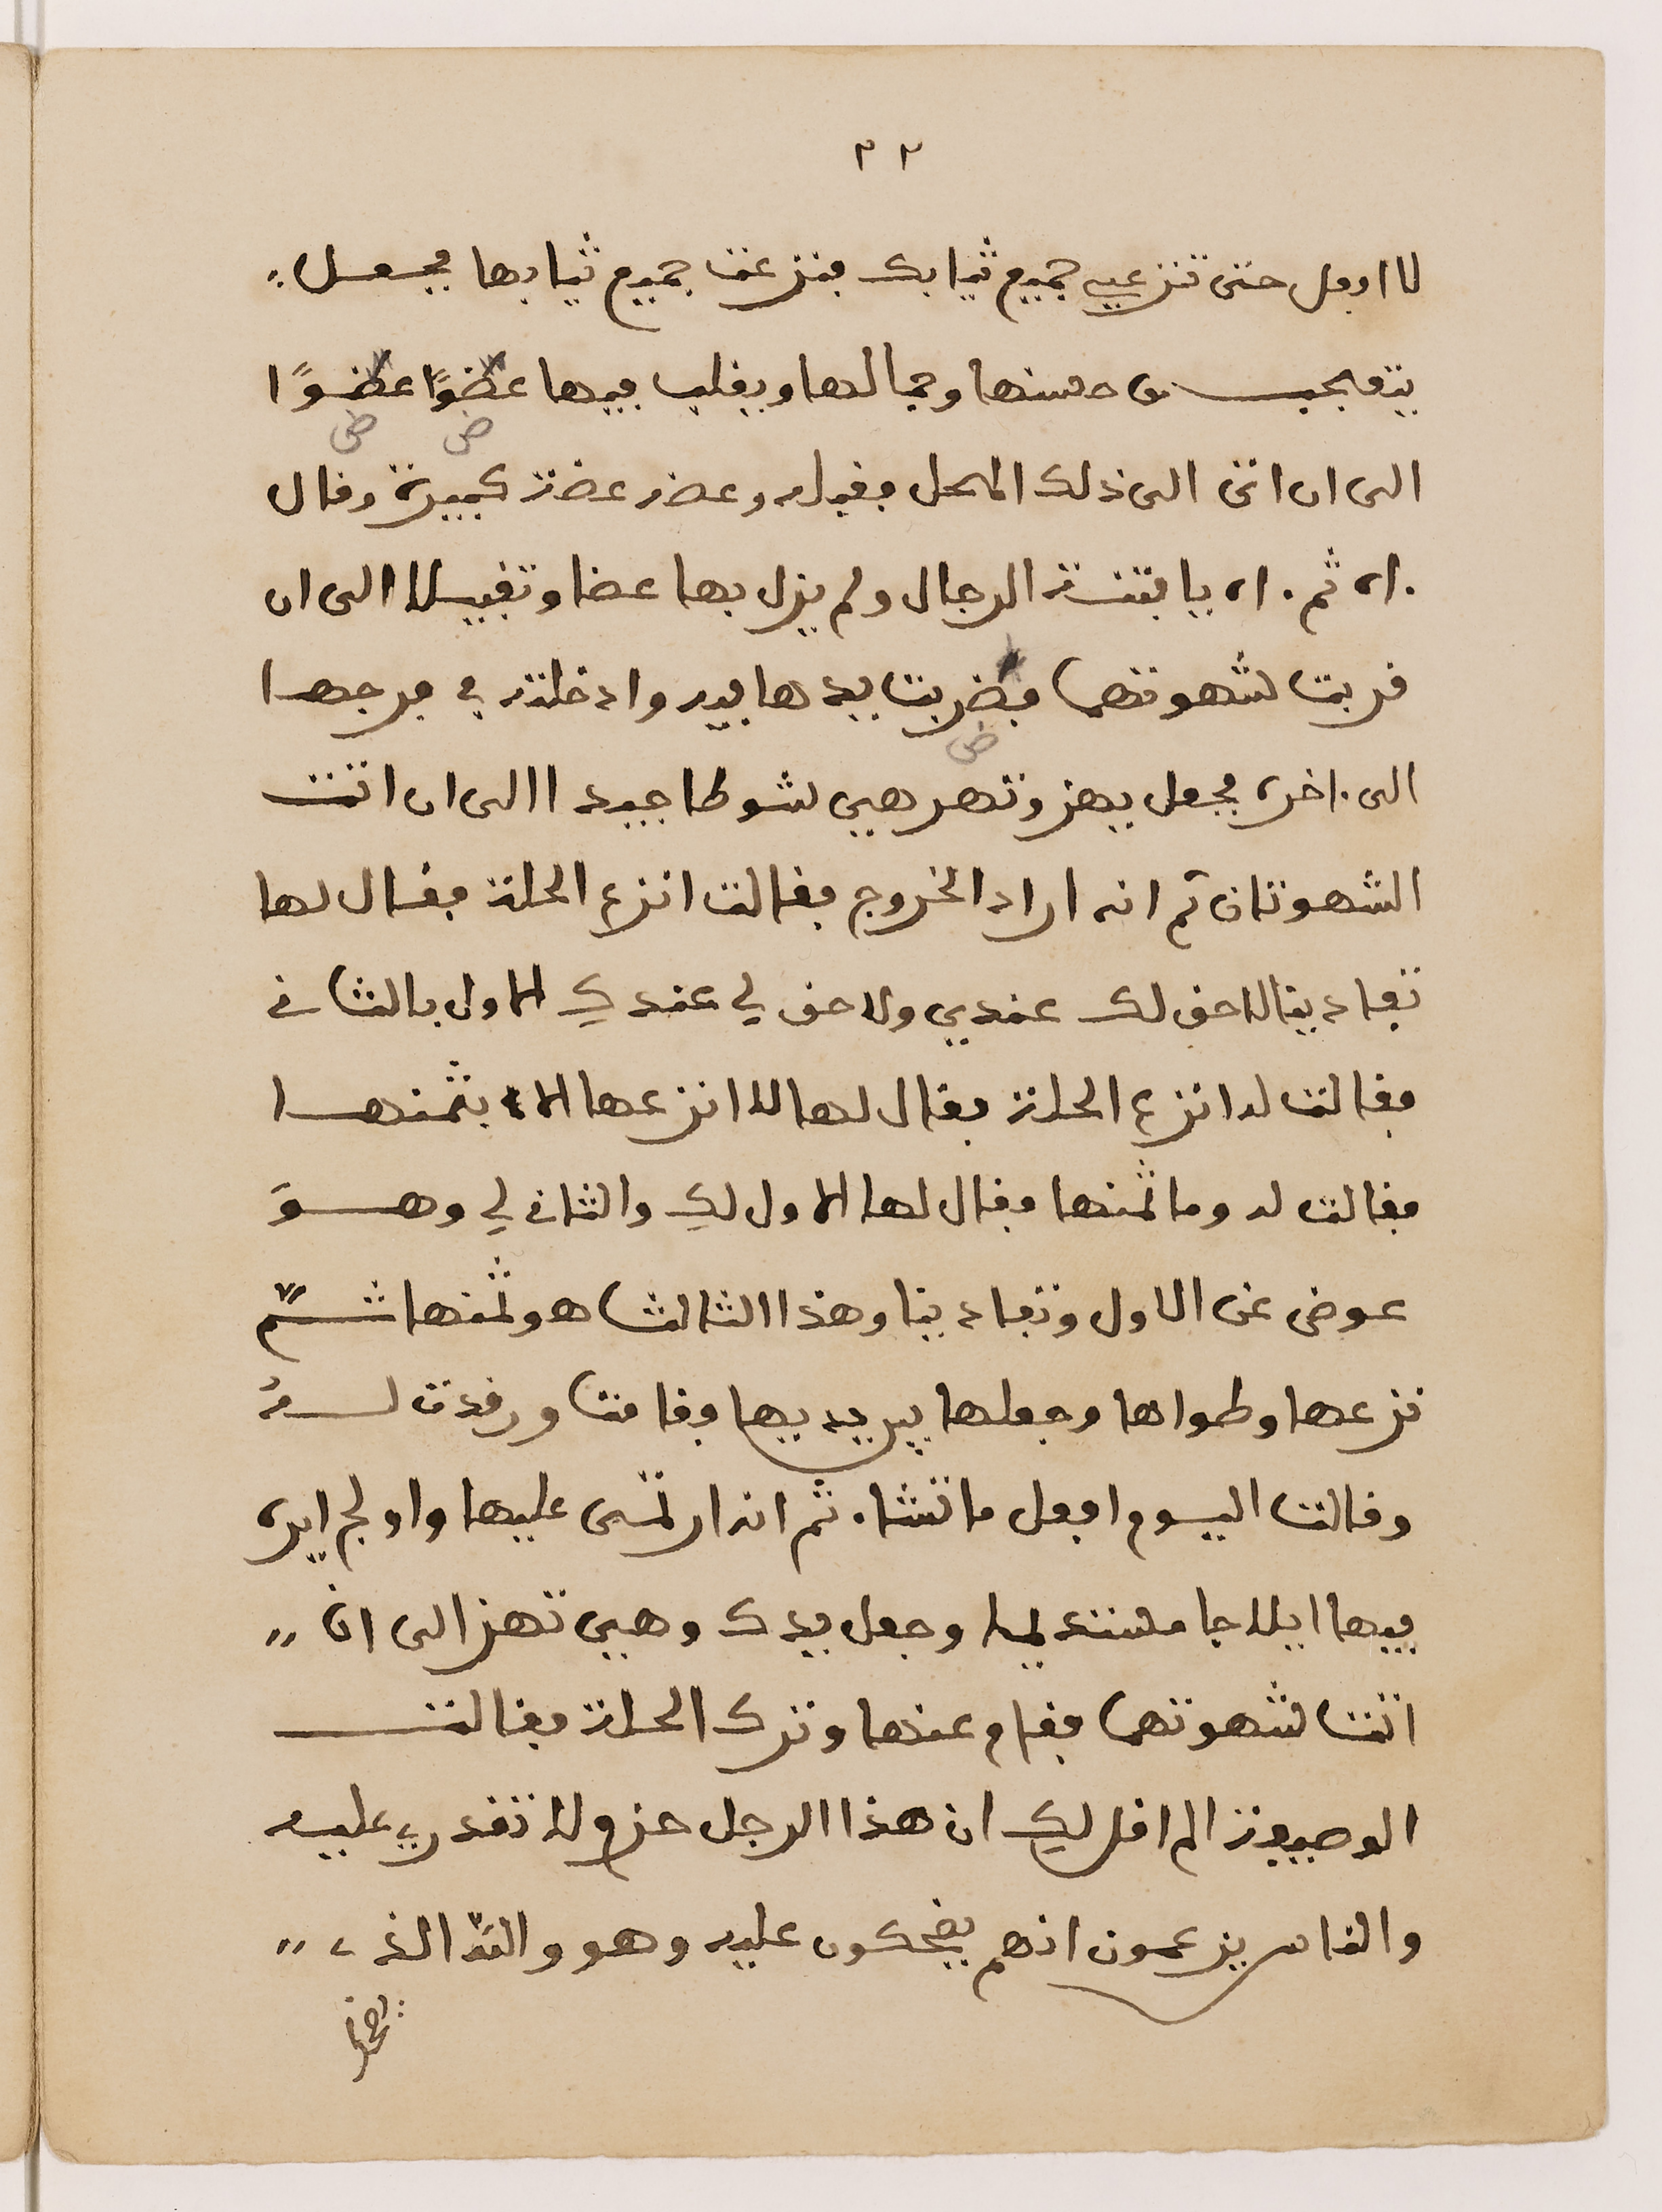 ٢٢
لا افعل حتى تنزعي جميع ثيابك فنزعت جميع ثيابها فجعل
يتعجب من حسنها وجمالها ويقلب فيها عضوًا عضوًا
ض ض
الى ان اتى الى ذلك المحل فقبله وعضه عضة كبيرة وقال
اه ثم اه يا فتنة الرجال ولم يزل بها عضا وتقبيلا الى ان
قربت شهوتهما فضربت يدها بيده وادخلته في فرجها
ض
الى اخره فجعل يهز وتهز هي شوطا جيدا الى ان اتت
الشهوتان ثم انه اراد الخروج فقالت انزع الحلة فقال لها
تفادينا لا حق لك عندي ولا حق لي عندك الاول بالثاني
فقالت له انزع الحلة فقال لها لا انزعها الا بثمنها
فقالت له وما ثمنها فقال لها الاول لك والثاني لي وهوَ
عوض عن الاول وتفادينا وهذا الثالث هو ثمنها ثمّ
نزعها وطواها وجعلها بين يديها فقامت ورقدت له
وقالت اليوم افعل ما تشاء ثم انه ارتمى عليها واولج ايره
فيها ايلاجا مستديما وجعل يدك وهي تهز الى ان
اتت شهوتهما فقام عنها وترك الحلة فقالت
الوصيفة الم اقل لك ان هذا الرجل حزم ولا تقدري عليه
والناس يزعمون انهم يضحكون عليه وهو والله الذي
يضحك